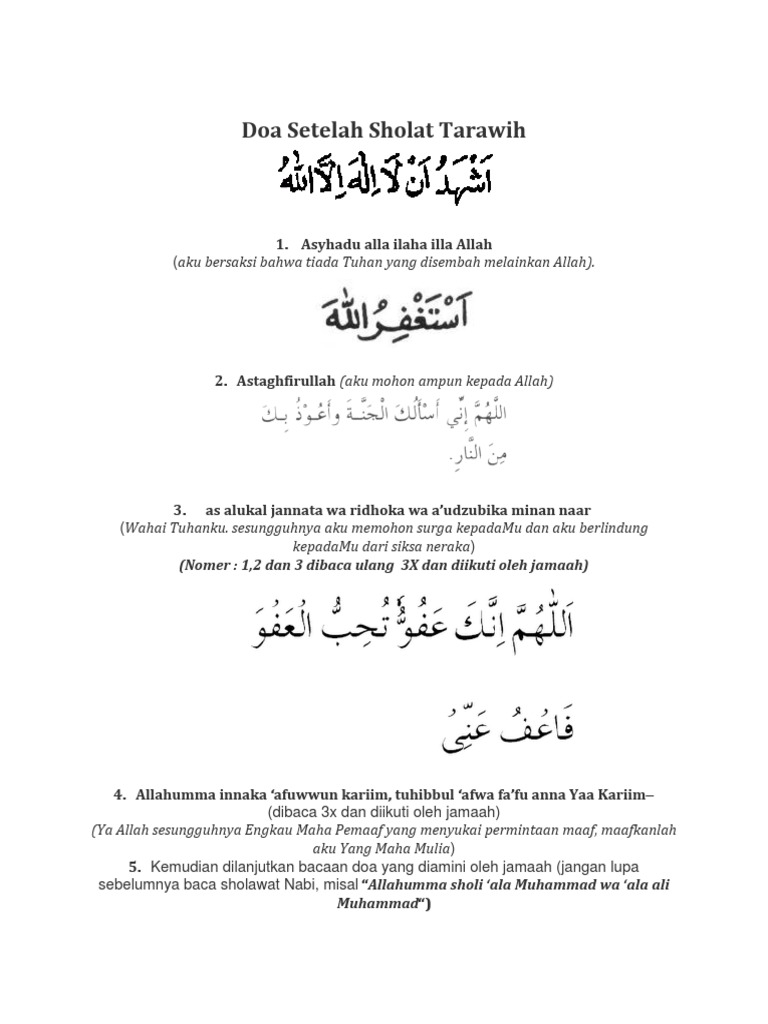 Doa Setelah Sholat Tarawih
اَشْهَدُ اَنْ لَا اِلٰهَ اِلَّا اللّٰهُ
1. Asyhadu alla ilaha illa Allah
(aku bersaksi bahwa tiada Tuhan yang disembah melainkan Allah).
اَسْتَغْفِرُ اللّٰهَ
2. Astaghfirullah (aku mohon ampun kepada Allah)
اللَّهُمَّ إِنِّي أَسْأَلُكَ الْجَنَّةَ وأَعُوْذُ بِكَ
مِنَ النَّارِ.
3. as alukal jannata wa ridhoka wa a’udzubika minan naar
(Wahai Tuhanku. sesungguhnya aku memohon surga kepadaMu dan aku berlindung
kepadaMu dari siksa neraka)
(Nomer : 1,2 dan 3 dibaca ulang 3X dan diikuti oleh jamaah)
اَللّٰهُمَّ اِنَّكَ عَفُوٌّ تُحِبُّ الْعَفْوَ
فَاعْفُ عَنِّيْ
4. Allahumma innaka ‘afuwwun kariim, tuhibbul ‘afwa fa’fu anna Yaa Kariim–
(dibaca 3x dan diikuti oleh jamaah)
(Ya Allah sesungguhnya Engkau Maha Pemaaf yang menyukai permintaan maaf, maafkanlah
aku Yang Maha Mulia)
5. Kemudian dilanjutkan bacaan doa yang diamini oleh jamaah (jangan lupa
sebelumnya baca sholawat Nabi, misal “Allahumma sholi ‘ala Muhammad wa ‘ala ali
Muhammad“)